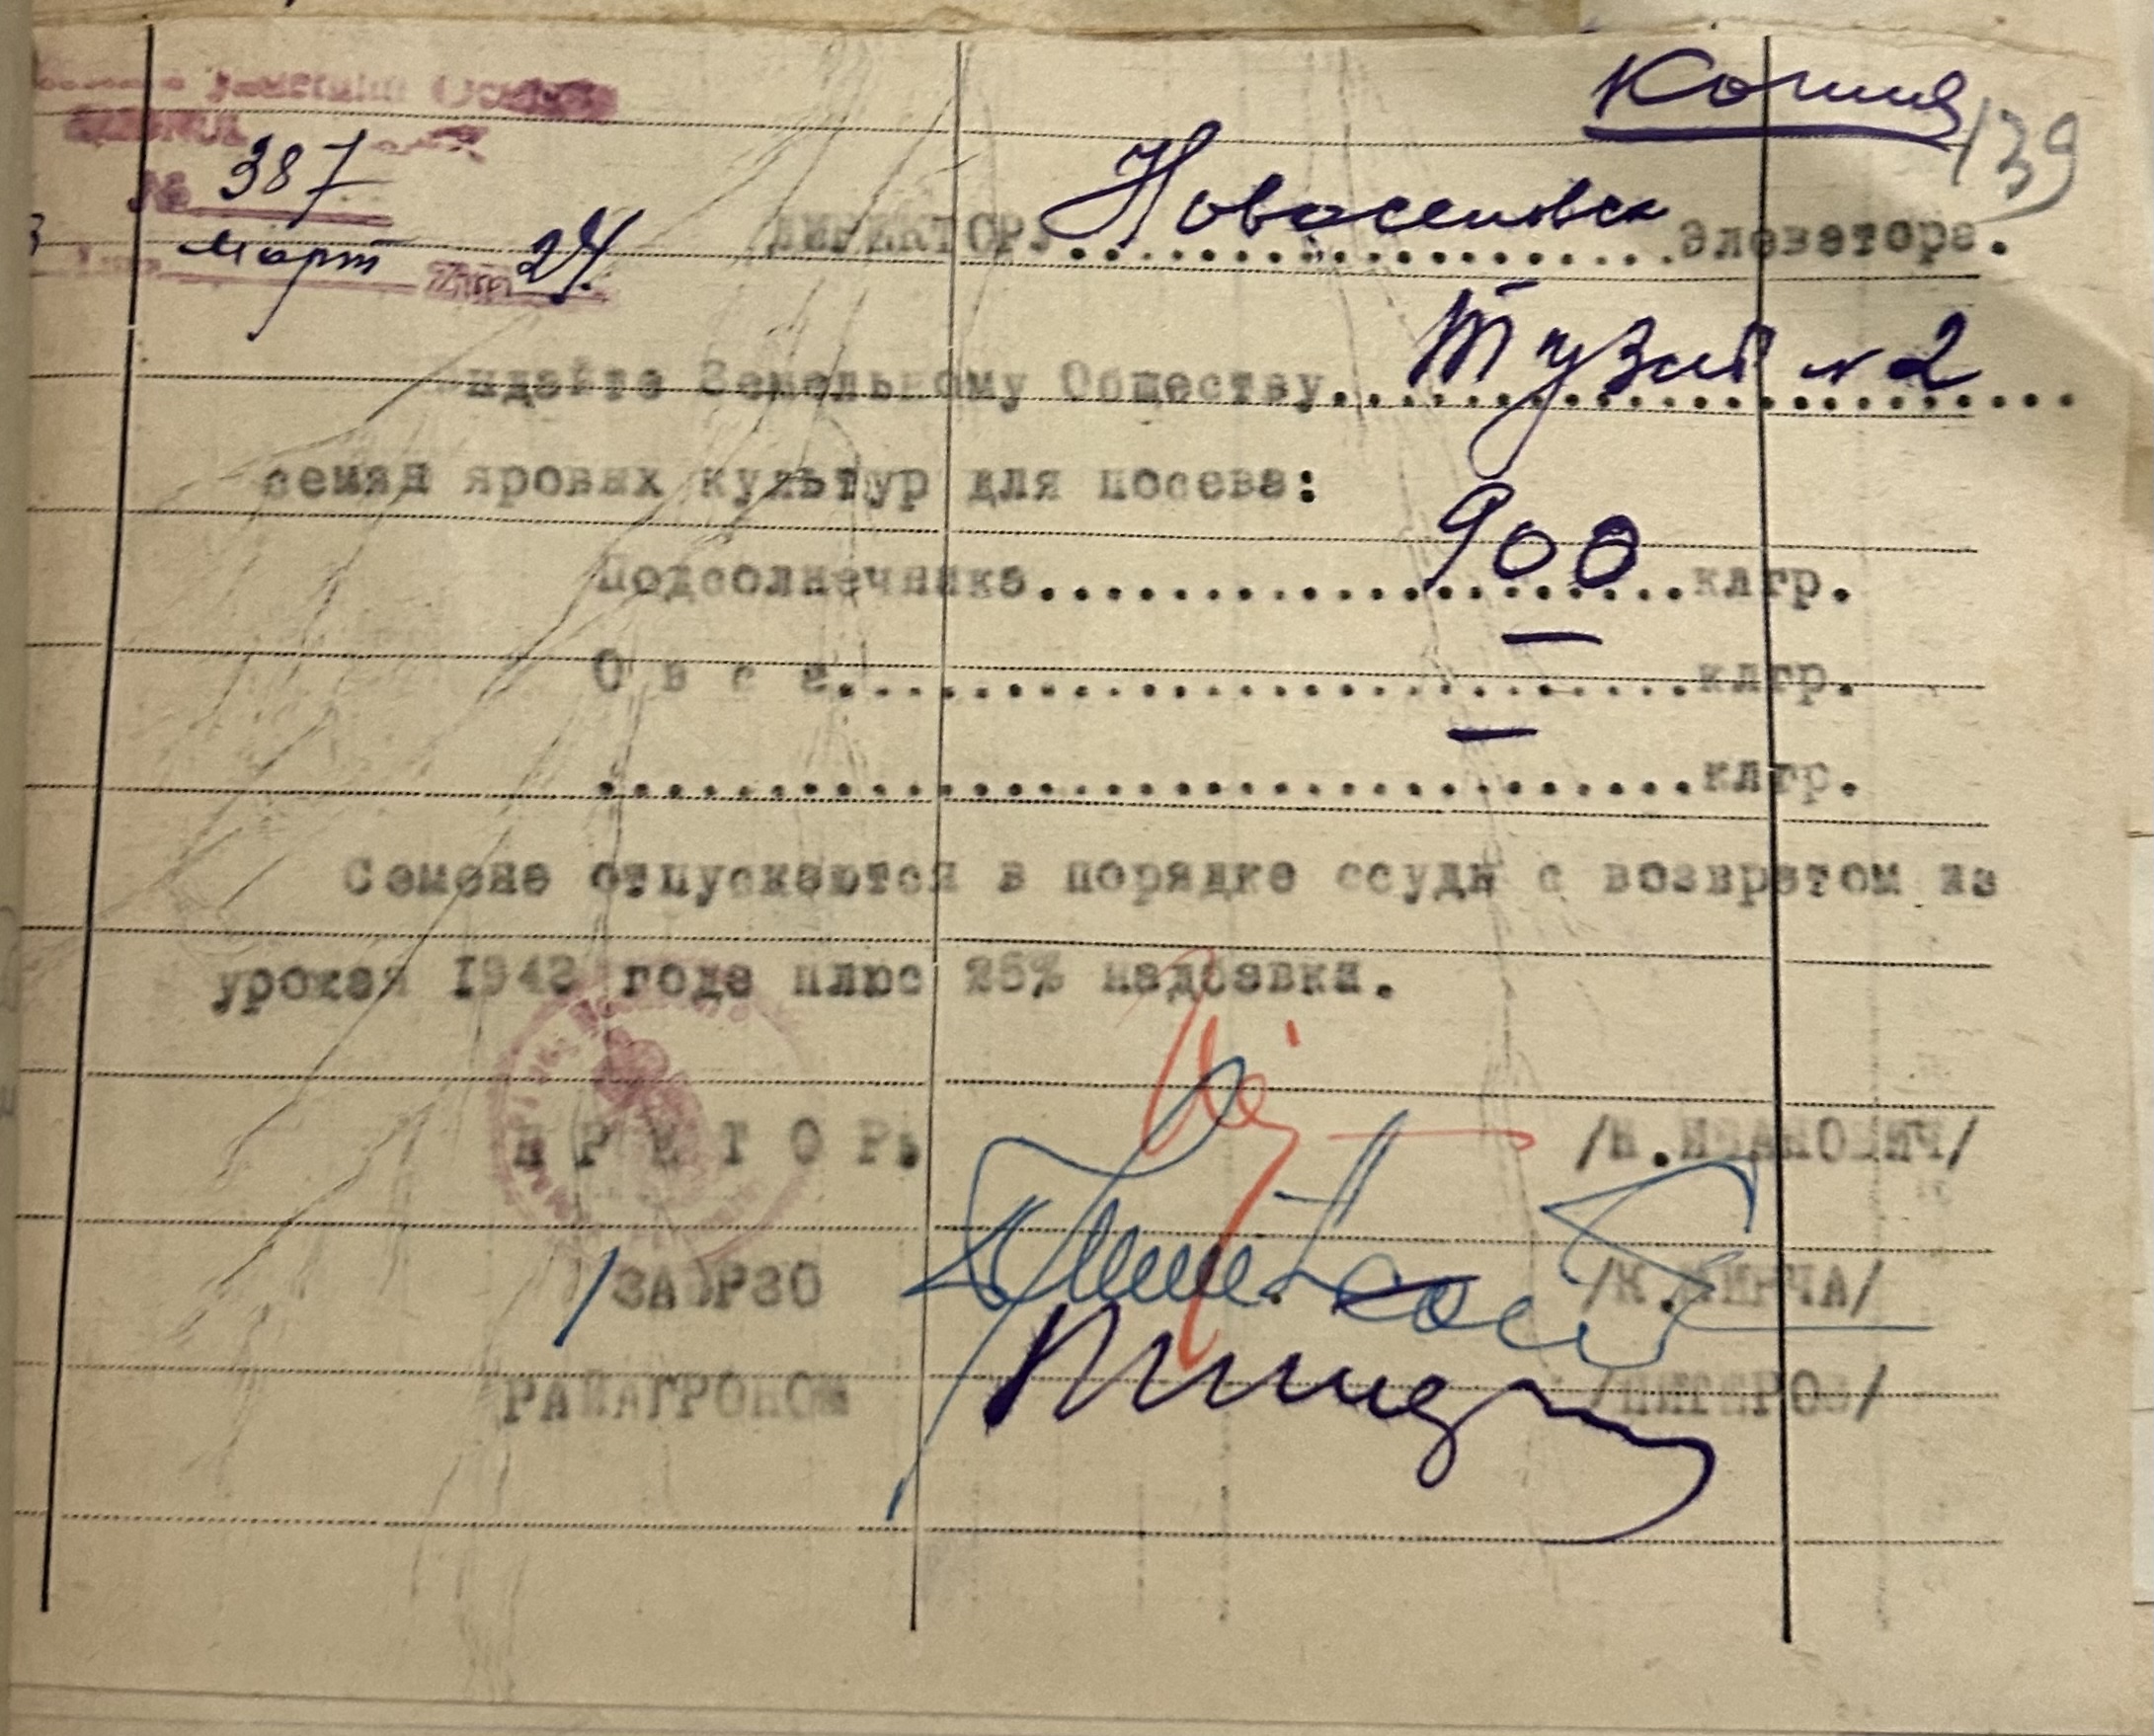 Копия
139
№ 387
март 24
ДИРЕКТОРУ Новоселовск Элеватора.
Земельному Обществу Тузлы №2
семян яровых культур для посева:
Подсолнечника 900 клгр.
О в с а — клгр.
— клгр.
Семена отпускаются в порядке ссуды с возвратом из
урожая 1943 года плюс 25% надбавки.
П Р Е Т О Р, /И.ИВАНОВИЧ/
/ЗАВ РЗО /К.МИРЧА/
РАЙАГРОНОМ